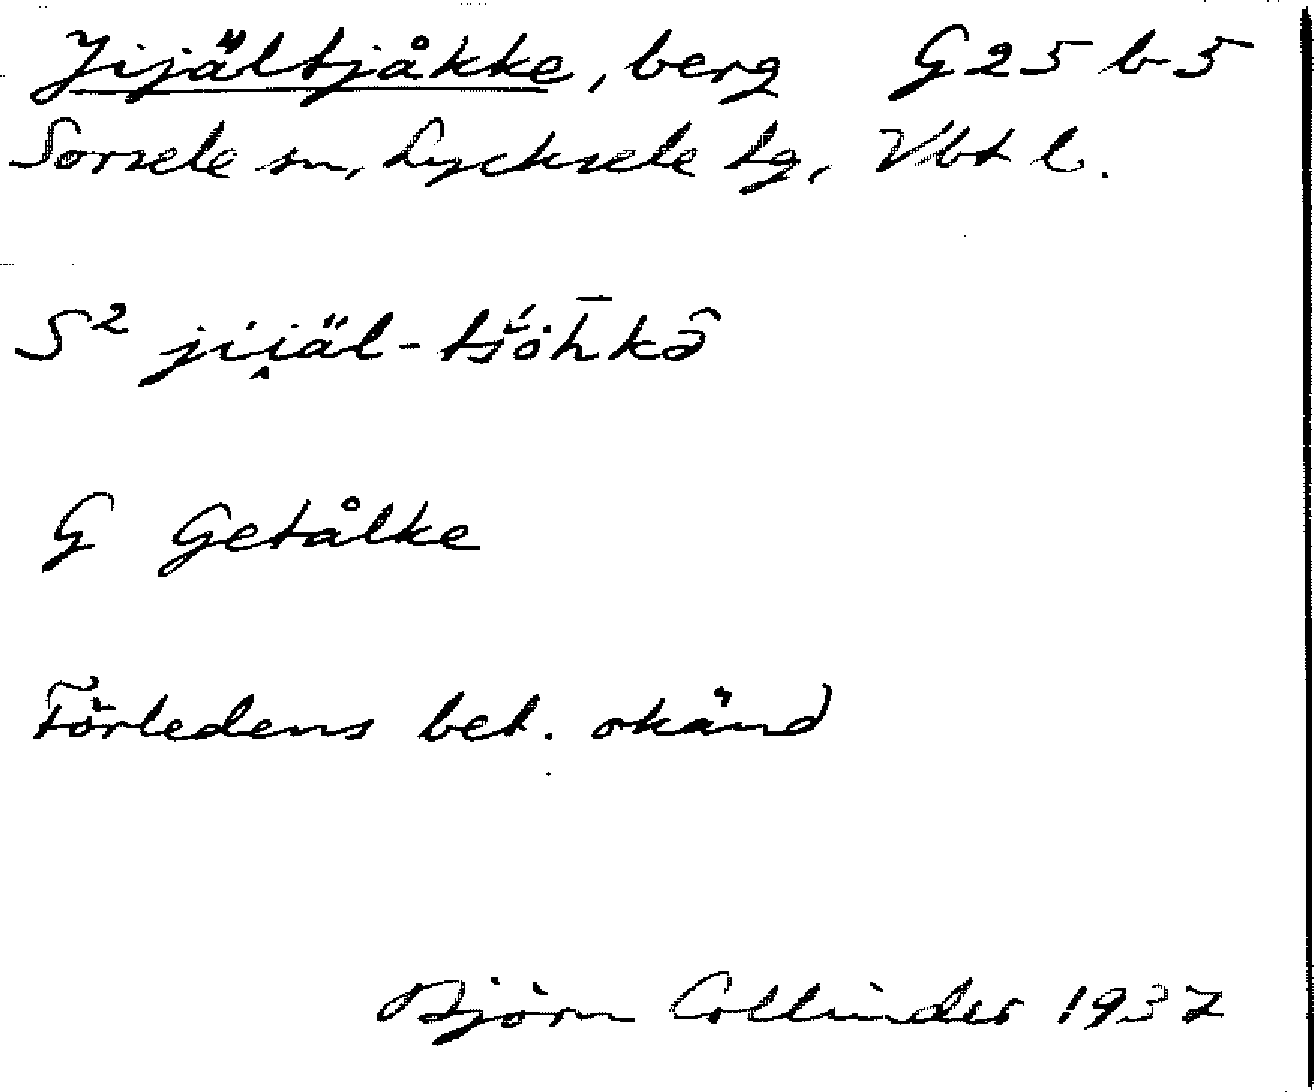 Jijältjåkke, berg G25 b5
Sorsele sn, Lycksele tg, Vbt l.
S² jii̭äl-tš́öh̄kə̂
G Getålke
Förledens bet. okänd
Björn Collinder 1937